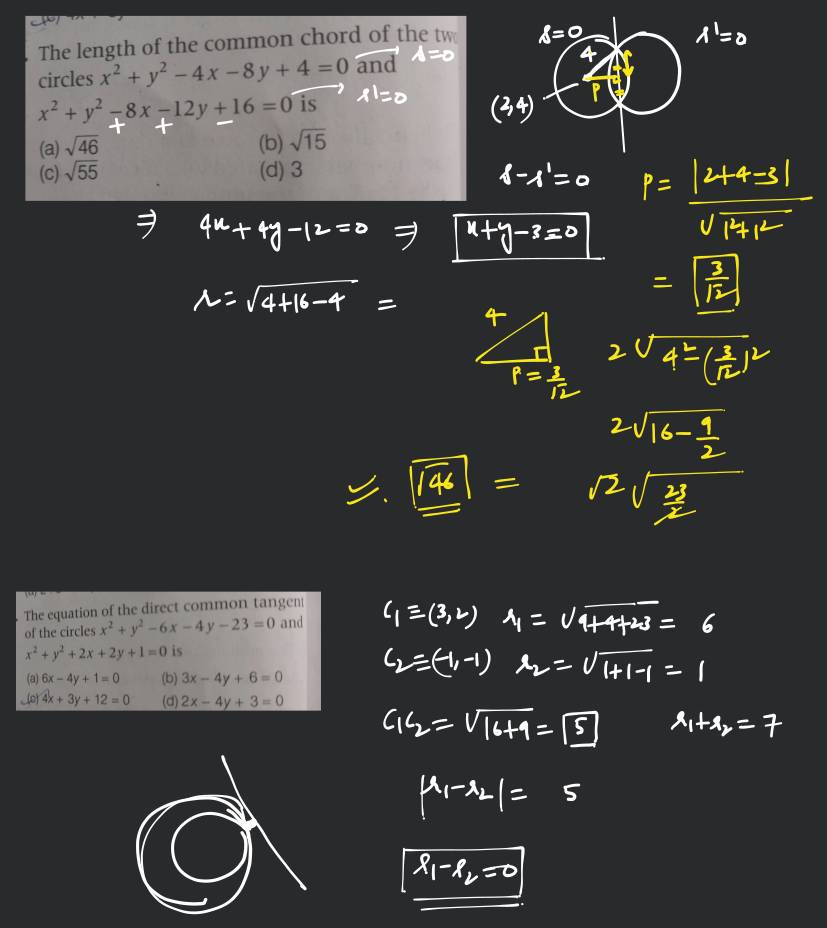 The length of the common chord of the two
circles x² + y² − 4x − 8y + 4 = 0 and → s=0
x² + y² − 8x − 12y + 16 = 0 is → s'=0
+ + −
(a) √46 (b) √15
(c) √55 (d) 3
s=0 s'=0
4
P
(2,4)
s-s'=0
⇒ 4x+4y-12=0 ⇒ x+y-3=0
r=√4+16-4 =
P= |2+4-3| / √1²+1²
= 3/√2
4
P=3/√2
2√4²-(3/√2)²
2√16-9/2
√46 = √2√23/2
The equation of the direct common tangent
of the circles x² + y² − 6x − 4y − 23 = 0 and
x² + y² + 2x + 2y + 1 = 0 is
(a) 6x − 4y + 1 = 0 (b) 3x − 4y + 6 = 0
(c) 4x + 3y + 12 = 0 (d) 2x − 4y + 3 = 0
C₁≡(3,2) r₁=√9+4+23 = 6
C₂≡(-1,-1) r₂=√1+1-1 = 1
C₁C₂=√16+9=5 r₁+r₂=7
|r₁-r₂|= 5
s₁-s₂=0